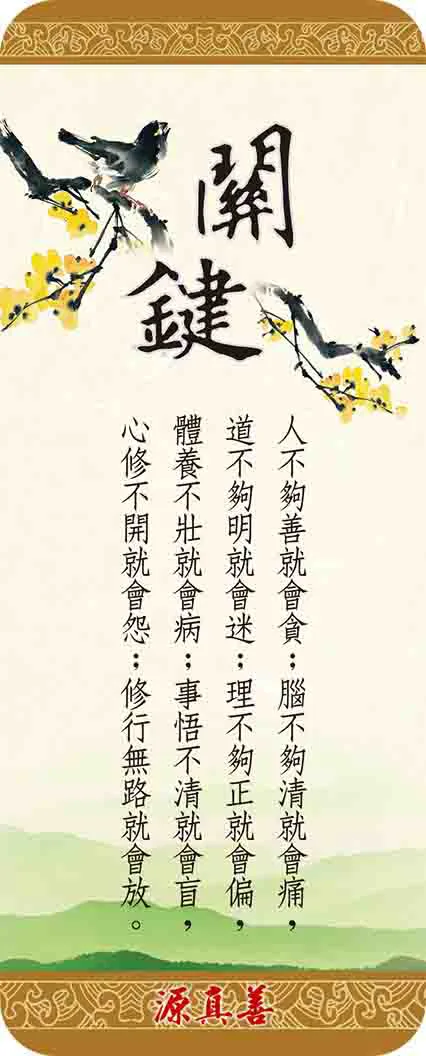 關鍵
人不夠善就會貪；腦不夠清就會痛，
道不夠明就會迷；理不夠正就會偏，
體養不壯就會病；事悟不清就會盲，
心修不開就會怨；修行無路就會放。
源真善